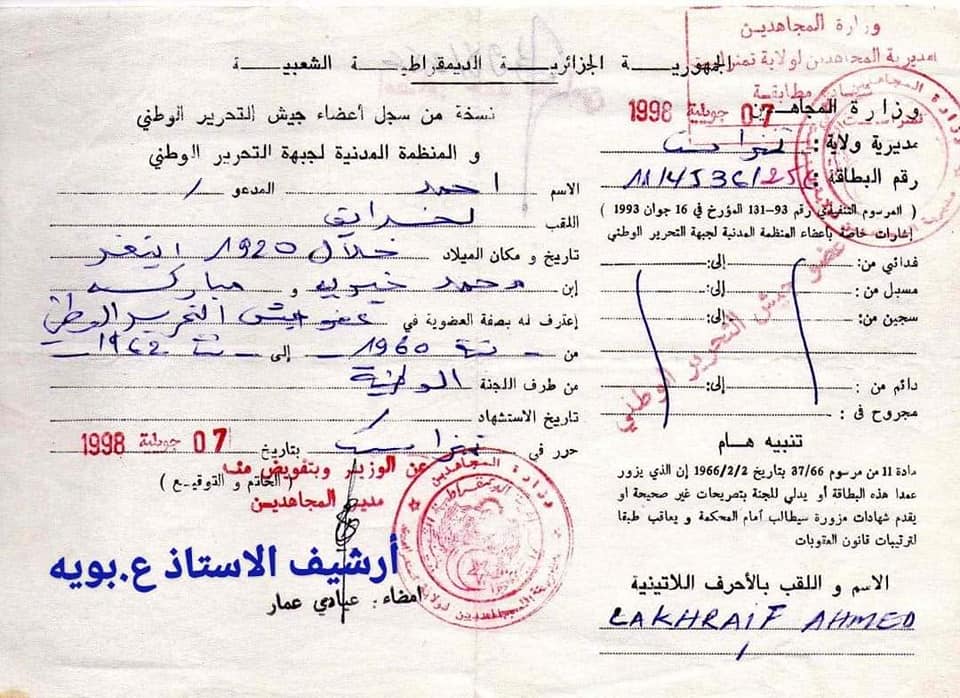 وزارة المجاهديـن
مديرية المجاهدين لولاية تمنراست
الجمهوريــة الجزائريــة الديمقراطيــة الشعبيــة
نسخة من سجل أعضاء جيش التحرير الوطني
و المنظمة المدنية لجبهة التحرير الوطني
الاسم احمد المدعو /
اللقب لخرايف
تاريخ و مكان الميلاد خلال 1920 اينغر
إبن محمد و مباركة
إعترف له بصفة العضوية في عضو جيش التحرير الوطني
من سنة 1960 إلى سنة 1962
من طرف اللجنة الوطنية
تاريخ الاستشهاد /
حرر في تمنراست بتاريخ 07 جويلية 1998
عن الوزير وبتفويض منه
( الخاتم و التوقيع )
مدير المجاهدين
أرشيف الاستاذ ع.بويه
امضاء: عبادي عمار
وزارة المجاهدين
07 جويلية 1998
مديرية ولاية: تمنراست
رقم البطاقة: 114536/256
( المرسوم التنفيذي رقم 93-131 المؤرخ في 16 جوان 1993 )
إشارات خاصة بأعضاء المنظمة المدنية لجبهة التحرير الوطني
فدائي من: إلى:
مسبل من: إلى:
سجين من: إلى:
دائم من: إلى:
مجروح في:
عضو جيش التحرير الوطني
تنبيه هـام
مادة 11 من مرسوم 37/66 بتاريخ 1966/2/2 إن الذي يزور
عمدا هذه البطاقة أو يدلي للجنة بتصريحات غير صحيحة او
يقدم شهادات مزورة سيطالب أمام المحكمة و يعاقب طبقا
لترتيبات قانون العقوبات
الاسم و اللقب بالأحرف اللاتينية
LAKHRAIF AHMED